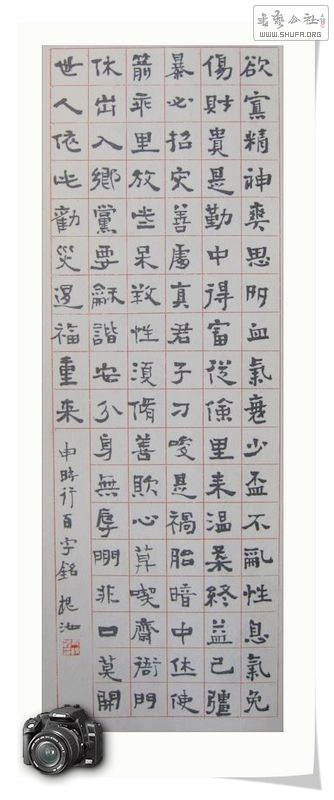 書藝公社
WWW.SHUFA.ORG
欲寡精神爽思多血氣衰少盃不亂性息氣免
傷財貴是勤中得富從儉里来温柔終益己彊
暴必招灾善處真君子刁唆是禍胎暗中休使
箭乖里放些呆性須脩善欺心喫齋衙門
休出入鄉黨要龢諧安分身無辱閒非口莫開
世人依此勸災退福重来
申時行百字銘